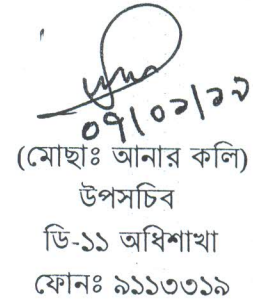 ০৭/০১/২০
(মোছাঃ আনার কলি)
উপসচিব
ডি-১১ অধিশাখা
ফোনঃ ৯১১৩৩১৯